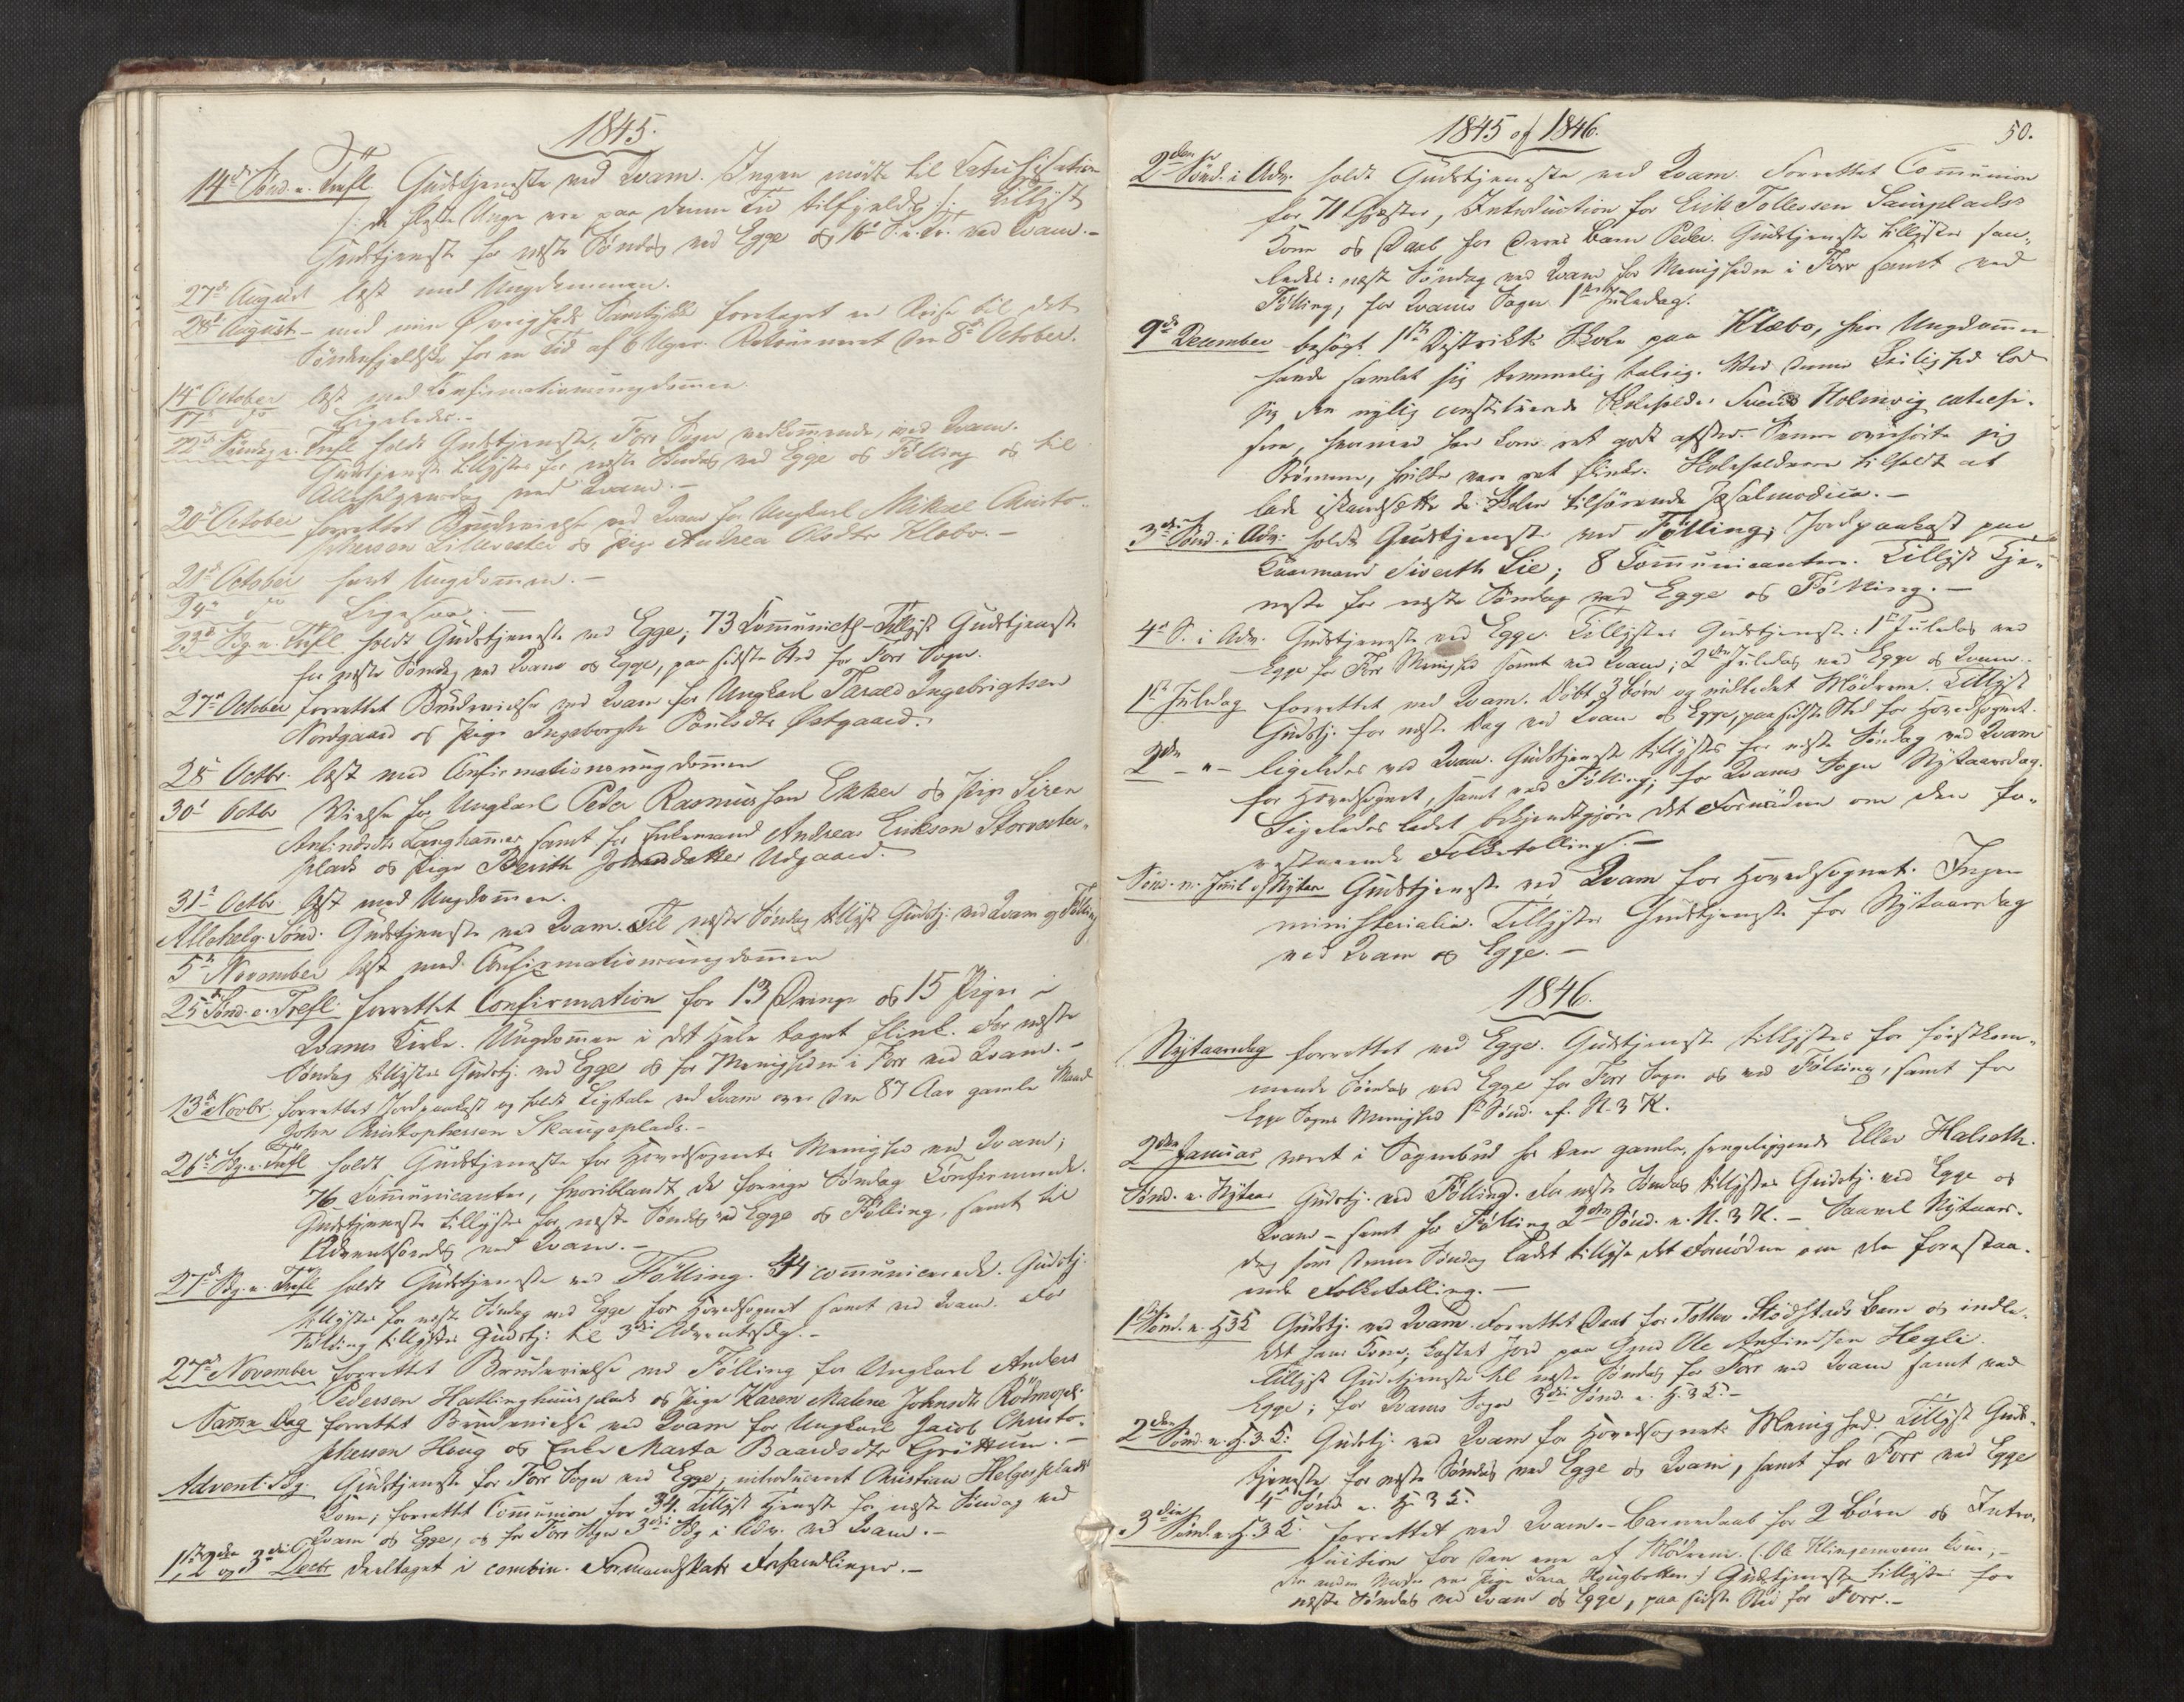 1845.
14de Sønd. e. Trefl. Gudstjeneste ved Qvam. Ingen mødte til Catechisation
/: de fleste Unge ere paa denne Tid tilfjelds :/. Tillyst
Gudstjeneste for næste Søndag ved Egge og 16de S. e. Tr. ved Qvam.-
27de August læst med Ungdommen.
28de August - med min Øvrigheds Samtykke foretaget en Reise til det
Søndenfjeldske for en Tid af 6 Uger. Retourneret den 8de October.
14de October læst med Confirmationsungdommen.
17de do Ligeledes.-
22de Søndag e. Trefl. holdt Gudstjeneste, Forr Sogn vedkommende, ved Qvam.
Gudstjeneste tillyses for næste Søndag ved Egge og Følling og til
Allehelgensdag ved Qvam.-
20de October forrettet Brudevielse ved Qvam for Ungkarl Mikael Christo-
phersen Lillevester og Pige Andrea Olsdtr Klæbo.-
21de October havt Ungdommen.-
24de do Ligesaa.-
23de Sdg. e. Trefl. holdt Gudstjeneste ved Egge; 73 Communicts.- Tillyst Gudstjeneste
for næste Søndag ved Qvam og Egge, paa sidste Sted for Forr Sogn.
27de October forrettet Brudevielse ved Qvam for Ungkarl Tarald Ingebrigtsen
Nordgaard og Pige Ingeborg Paulsdtr Østgaard.
28de Octbr. læst med Confirmationsungdommen
30te Octbr Vielse for Ungkarl Peder Rasmussen Ekker og Pige Siren
Arfindsdtr Langhammer samt for Enkemand Andreas Erikson Storvester-
plads og Pige Berith Johnsdatter Udgaard.
31te Octbr. læst med Ungdommen.
Allehelg. Sønd. Gudstjeneste ved Qvam. Til næste Søndag tillyst Gudstj. ved Qvam og Følling
5te November læst med Confirmationsungdommen
25de Sønd. e. Trefl. forrettet Confirmation for 13 Drenge og 15 Piger i
Qvams Kirke. Ungdommen i det Hele taget flink. For næste
Søndag tillyses Gudstj. ved Egge og for Menigheden i Forr ved Qvam.-
13de Novbr. forrettet Jordpaakast og holdt Ligtale ved Qvam over den 87 Aar gamle Mand
John Christophersen Skaugeplads.-
26de Sdg. e. Trefl. holdt Gudstjeneste for Hovedsognets Menighed ved Qvam;
76 Communicanter, hvoriblandt de forrige Søndag Confirmerede.
Gudstjeneste tillyses for næste Søndag ved Egge og Følling, samt til
Adventsøndag ved Qvam.-
27de Sdg. e. Trefl. holdt Gudstjeneste ved Følling. 44 communicerede. Gudstj.
tillyses for næste Søndag ved Egge for Hovedsognet samt ved Qvam. For
Følling tillyses Gudstj. til 3die Adventsdg.-
27de November forrettet Brudevielse ved Følling for Ungkarl Anders
Pedersen Hatlinghuusplads og Pige Karen Malene Johnsdtr Rødmopl.
Samme Dag forrettet Brudevielse ved Qvam for Ungkarl Jacob Christo-
phersen Haug og Enke Marta Baardsdtr Grøttum.-
Advent. Sdg. Gudstjeneste for Forr Sogn ved Egge; introduceret Christian Helgesplads
Kone; forrettet Communion for 34. Tillyst Tjeneste for næste Søndag ved
Qvam og Egge, og for Forr Sogn 3die Sdg i Adv. ved Qvam.-
1ste, 2den og 3die Decbr deeltaget i combin. Formandskabs Forhandlinger.-
1845 og 1846.
50.
2den Sønd. i Adv. holdt Gudstjeneste ved Qvam. Forrettet Communion
for 71 Gjæster, Introduction for Erik Tollessen Saurplads
Kone og Daab for deres Barn Peder. Gudstjeneste tillyses saa-
ledes: næste Søndag ved Qvam for Menigheden i Forr samt ved
Følling, for Qvams Sogn 1ste Juledag.
9de December besøgt 1ste Distrikts Skole paa Klæbo, hvor Ungdommen
havde samlet sig temmelig talrig. Ved denne Leilighed lod
jeg den nylig constituerede Skoleholder Svend Holmvig catechi-
sere, hvormed han kom ret godt afsted. Samme overhørte jeg
Børnene, hvilke vare ret flinke. Skoleholderen tilholdt at
lade istandsætte de Skolen tilhørende Psalmodica.-
3die Sønd. i Adv. holdt Gudstjeneste ved Følling; Jordpaakast paa
Gaarmand Siverth Lie; 8 Communicanter. Tillyst Tje-
neste for næste Søndag ved Egge og Følling.-
4de S. i Adv. Gudstjeneste ved Egge. Tillyses Gudstjeneste: 1ste Juledag ved
Egge for Forr Menighed samt ved Qvam; 2den Juledag ved Egge og Qvam.
1ste Juledag forrettet ved Qvam. Døbt 3 Børn og indledet Mødrene. Tillyst
Gudstj. for næste Dag ved Qvam og Egge, paa sidste Sted for Hovedsognet.
2den - " - ligeledes ved Qvam. Gudstjeneste tillyses for næste Søndag ved Qvam
for Hovedsognet, samt ved Følling; for Qvams Sogn Nytaarsdag.
Ligeledes ladet bekjendtgjøre det Fornødne om den fo-
restaaende Folketælling.-
Sønd. m. Juul og Nytaar Gudstjeneste ved Qvam for Hovedsognet. Ingen
ministerialia. Tillyses Gudstjeneste for Nytaarsdag
ved Qvam og Egge.-
1846.
Nytaarsdag forrettet ved Egge. Gudstjeneste tillyses for førstkom-
mende Søndag ved Egge for Forr Sogn og ved Følling, samt for
Egge Sogns Menighed 1ste Sønd. ef. H. 3 K.
2den Januar været i Sognebud hos den gamle, sengeliggende Eller Halseth.
Sønd. e. Nytaar Gudstj. ved Følling. For næste Søndag tillyses Gudstj. ved Egge og
Qvam - samt for Følling 2den Sønd. e. H. 3 K. - Saavel Nytaars-
dag som denne Søndag ladet tillyse det Fornødne om den forestaa-
ende Folketælling.-
1ste Sønd. e. H 3 K Gudstj. ved Qvam. Forrettet Daab for Totter Stødstads Barn og indle-
det hans Kone; kastet Jord paa Gmd Ole Arfindsen Hegli.
Tillyst Gudstjeneste til næste Søndag for Forr ved Qvam samt ved
Egge; for Qvams Sogn 3die Sønd. e. H. 3 K.-
2den Sønd. e. H. 3 K: Gudstj. ved Qvam for Hovedsognets Menighed. Tillyst Guds-
tjeneste for næste Søndag ved Egge og Qvam, samt for Forr ved Egge
4de Sønd. e. H. 3 K.
3die Sønd. e. H. 3 K. forrettet ved Qvam.- Barnedaab for 2 Børn og Intro-
duction for den ene af Mødrene. (Ole Klingenmoens Kone,-
den anden Moder var Pige Sara Haugbakken.) Gudstjeneste tillyses for
næste Søndag ved Qvam og Egge, paa sidste Sted for Forr.-